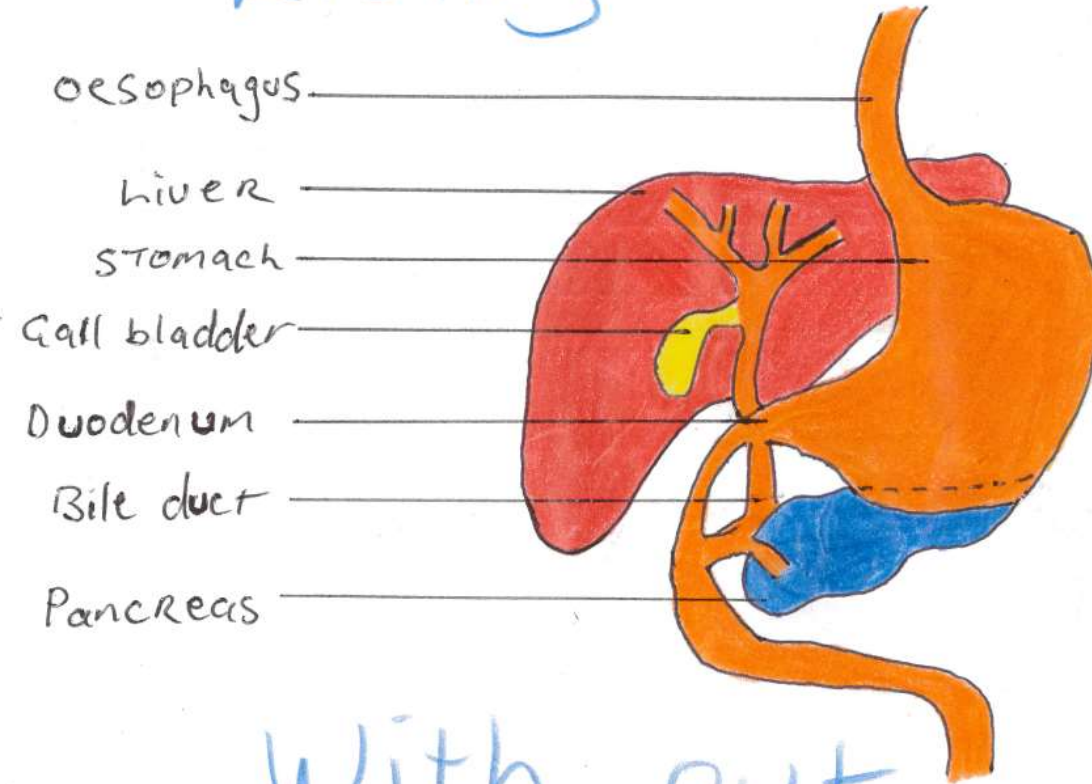 oesophagus
Liver
Stomach
Gall bladder
Duodenum
Bile duct
Pancreas
With out